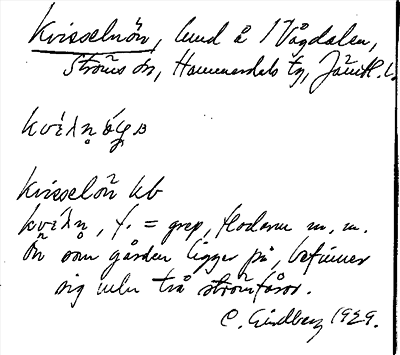 Kvisselnön, lund å Vågdalen,
Ströms sn, Hammerdals tg, Jämtl. l.
Kvisselön kb
f. = grep, floderne m. m.
Ön som gården ligger på, befinner
sig mln två strömfåror.
C. Lindberg 1929.